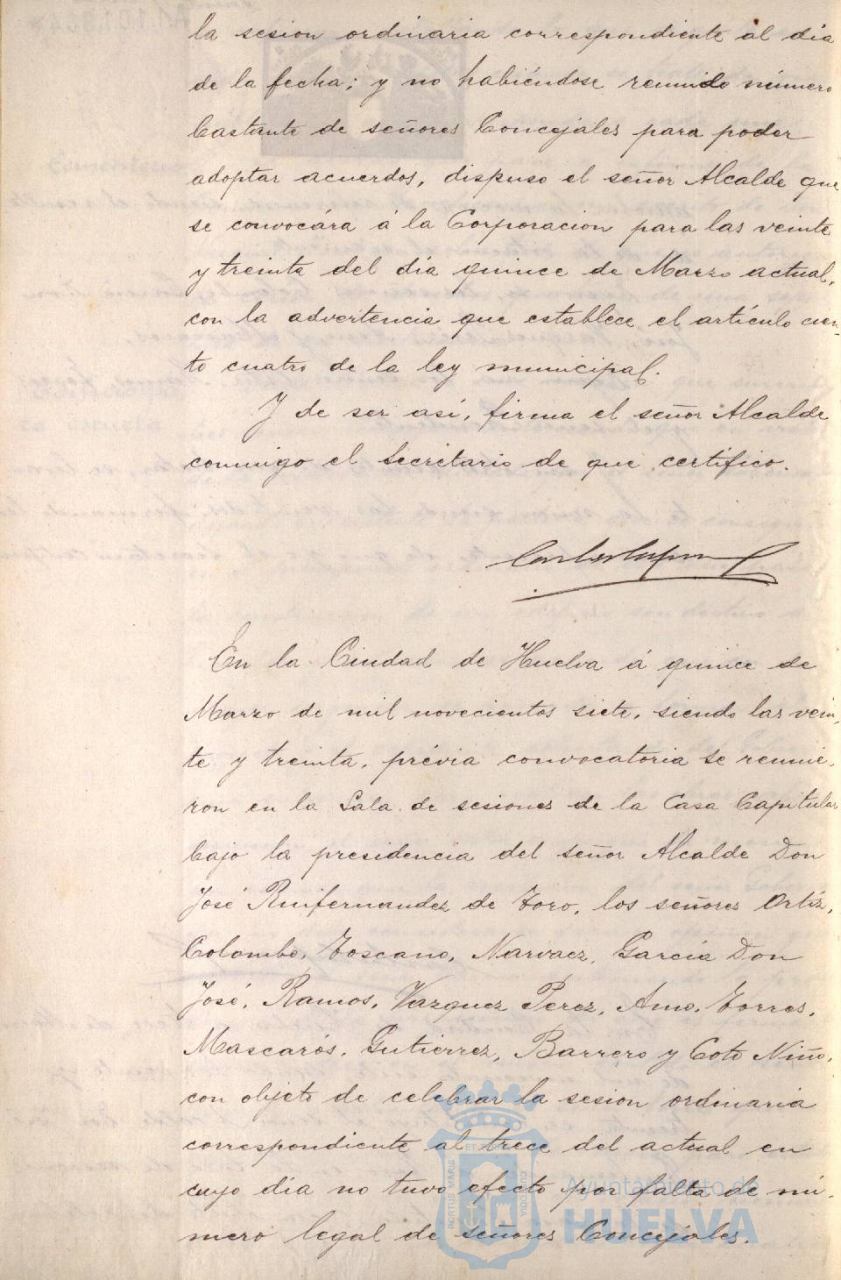 la sesion ordinaria correspondiente al dia
de la fecha; y no habiéndose reunido número
bastante de señores Concejales para poder
adoptar acuerdos, dispuso el señor Alcalde que
se convocára á la Corporacion para las veinte
y treinta del dia quince de Marzo actual,
con la advertencia que establece el artículo cien-
to cuatro de la ley municipal.
Y de ser así, firma el señor Alcalde
conmigo el Secretario de que certifico.
En la Ciudad de Huelva á quince de
Marzo de mil novecientos siete, siendo las vein-
te y treinta, prévia convocatoria se reunie-
ron en la Sala de sesiones de la Casa Capitular
bajo la presidencia del señor Alcalde Don
José Ruifernandez de Toro, los señores Ortíz,
Colombo, Toscano, Narvaez, García Don
José, Ramos, Vazquez Perez, Amo, Torres,
Mascarós, Gutierrez, Barrero y Coto Niño,
con objeto de celebrar la sesion ordinaria
correspondiente al trece del actual en
cuyo dia no tuvo efecto por falta de nú-
mero legal de señores Concejales.
Ayuntamiento de
HUELVA